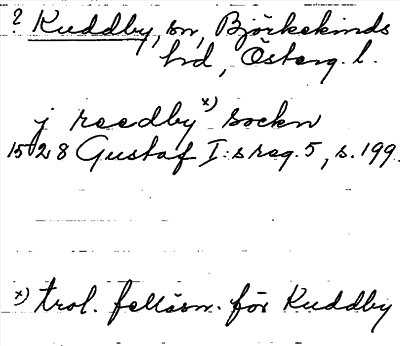 ? Kuddby, sn, Björkekinds
hd, Österg. l.
j reedby x) sockn
1528 Gustaf I:s reg. 5, s. 199.
x) trol. felläsn. för Kuddby